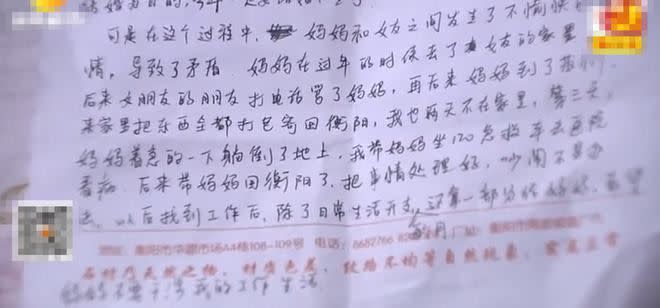 可是在这个过程中，妈妈和女友之间发生了不愉快的
情，导致了矛盾 妈妈在过年的时候去了女友的家里
后来女朋友的朋友打电话骂了妈妈，再后来妈妈到了
来家里把东西全都打包寄回衡阳，我也两天不在家里，第三天，
妈妈着急的一下躺倒了地上，我带妈妈坐120急救车去医院
看病 后来带妈妈回衡阳了，把事情处理好，吵闹不是办
法 以后找到工作后，除了日常生活开支，每月还拿一部分给妈妈，希望
地址：衡阳市华源市场A4栋108-109号 电话：8687766
石材乃天然之物，材质色差，纹路不均等自然现象，实属正常
妈妈不要干涉我的工作生活